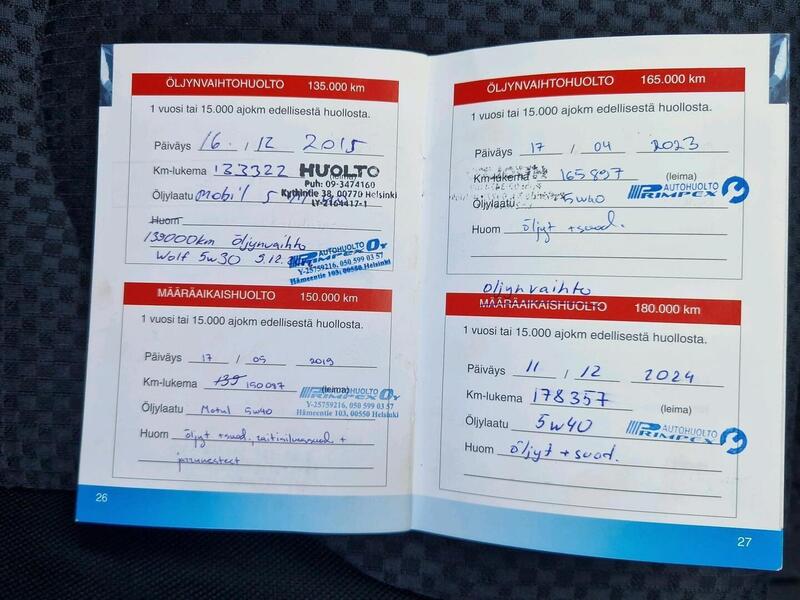 ÖLJYNVAIHTOHUOLTO 135.000 km
1 vuosi tai 15.000 ajokm edellisestä huollosta.
Päiväys 16 / 12 2015
Km-lukema 133322 (leima)
HUOLTO
Puh: 09-3474160
Kythintie 38, 00770 Helsinki
LY-2164417-1
Öljylaatu Mobil 5
Huom
139000km öljynvaihto
Wolf 5w30 9.12.
AUTOHUOLTO
PRIMPEX OY
Y-25759216, 050 599 03 57
Hämeentie 103, 00550 Helsinki
MÄÄRÄAIKAISHUOLTO 150.000 km
1 vuosi tai 15.000 ajokm edellisestä huollosta.
Päiväys 17 / 05 2019
Km-lukema 139 150097 (leima)
AUTOHUOLTO
PRIMPEX OY
Y-25759216, 050 599 03 57
Hämeentie 103, 00550 Helsinki
Öljylaatu Motul 5w40
Huom öljyt + suod, raitisilmasuod +
jarrunesteet
26
ÖLJYNVAIHTOHUOLTO 165.000 km
1 vuosi tai 15.000 ajokm edellisestä huollosta.
Päiväys 17 / 04 2023
Km-lukema 165897 (leima)
Öljylaatu 5w40
AUTOHUOLTO
PRIMPEX
Huom öljyt + suod.
öljynvaihto
MÄÄRÄAIKAISHUOLTO 180.000 km
1 vuosi tai 15.000 ajokm edellisestä huollosta.
Päiväys 11 / 12 2024
Km-lukema 178357 (leima)
Öljylaatu 5w40
AUTOHUOLTO
PRIMPEX
Huom öljyt + suod.
27